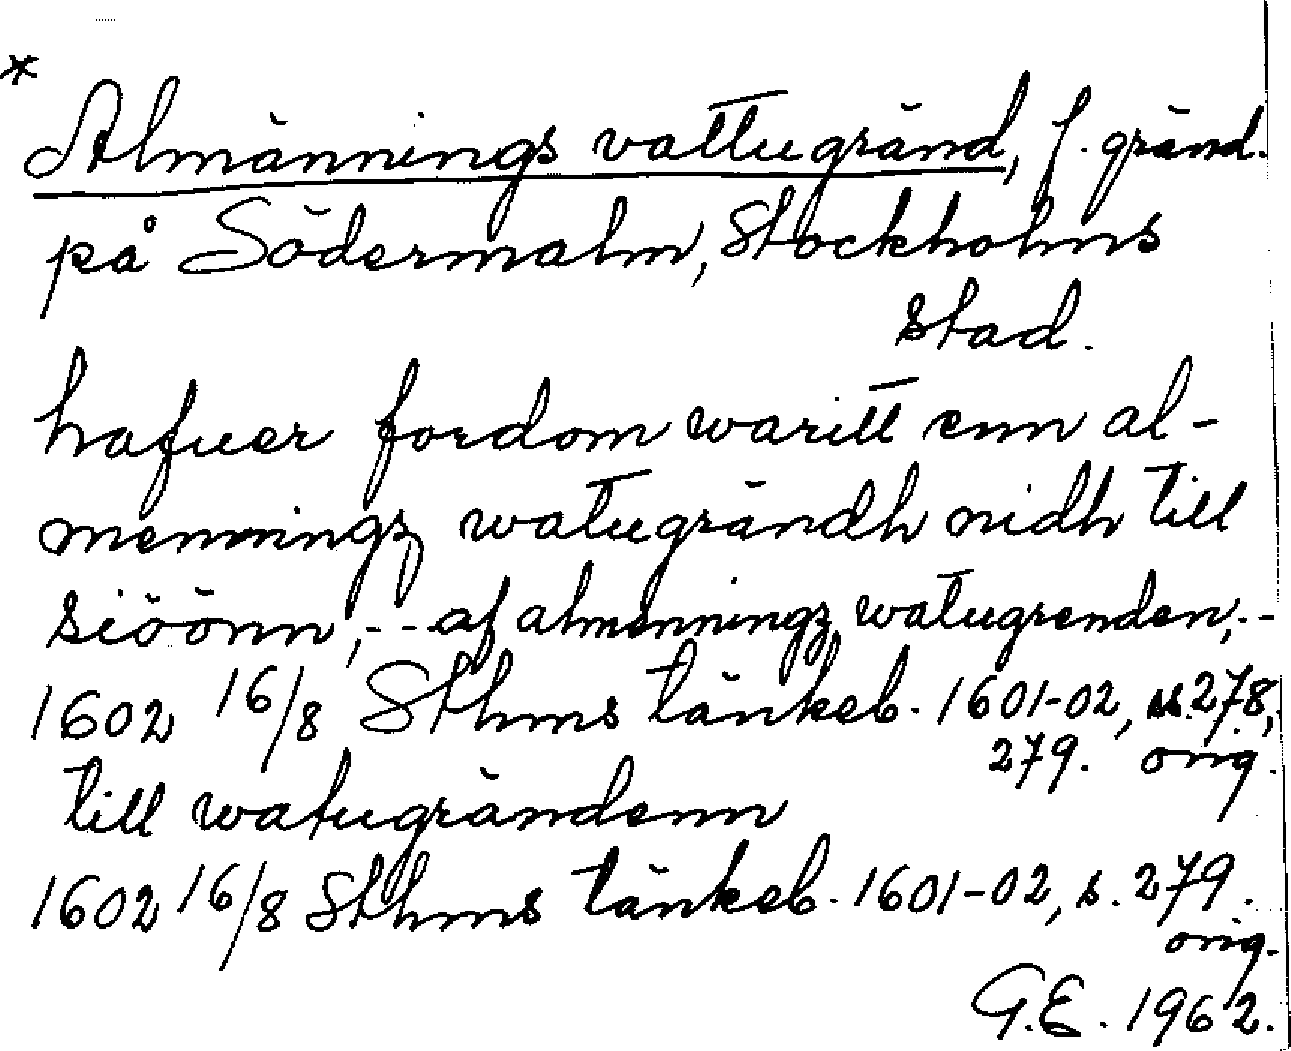 *
Almännings vattugränd, f. gränd
på Södermalm, Stockholms
stad.
hafuer fordom waritt enn al-
menningz watugrändh nidh till
siöönn,-- af almenningz watugrenden,--
1602 16/8 Sthms tänkeb. 1601-02, ss. 278,
279. orig.
till watugrändenn
1602 16/8 Sthms tänkeb. 1601-02, s. 279.
orig.
G.E. 1962.